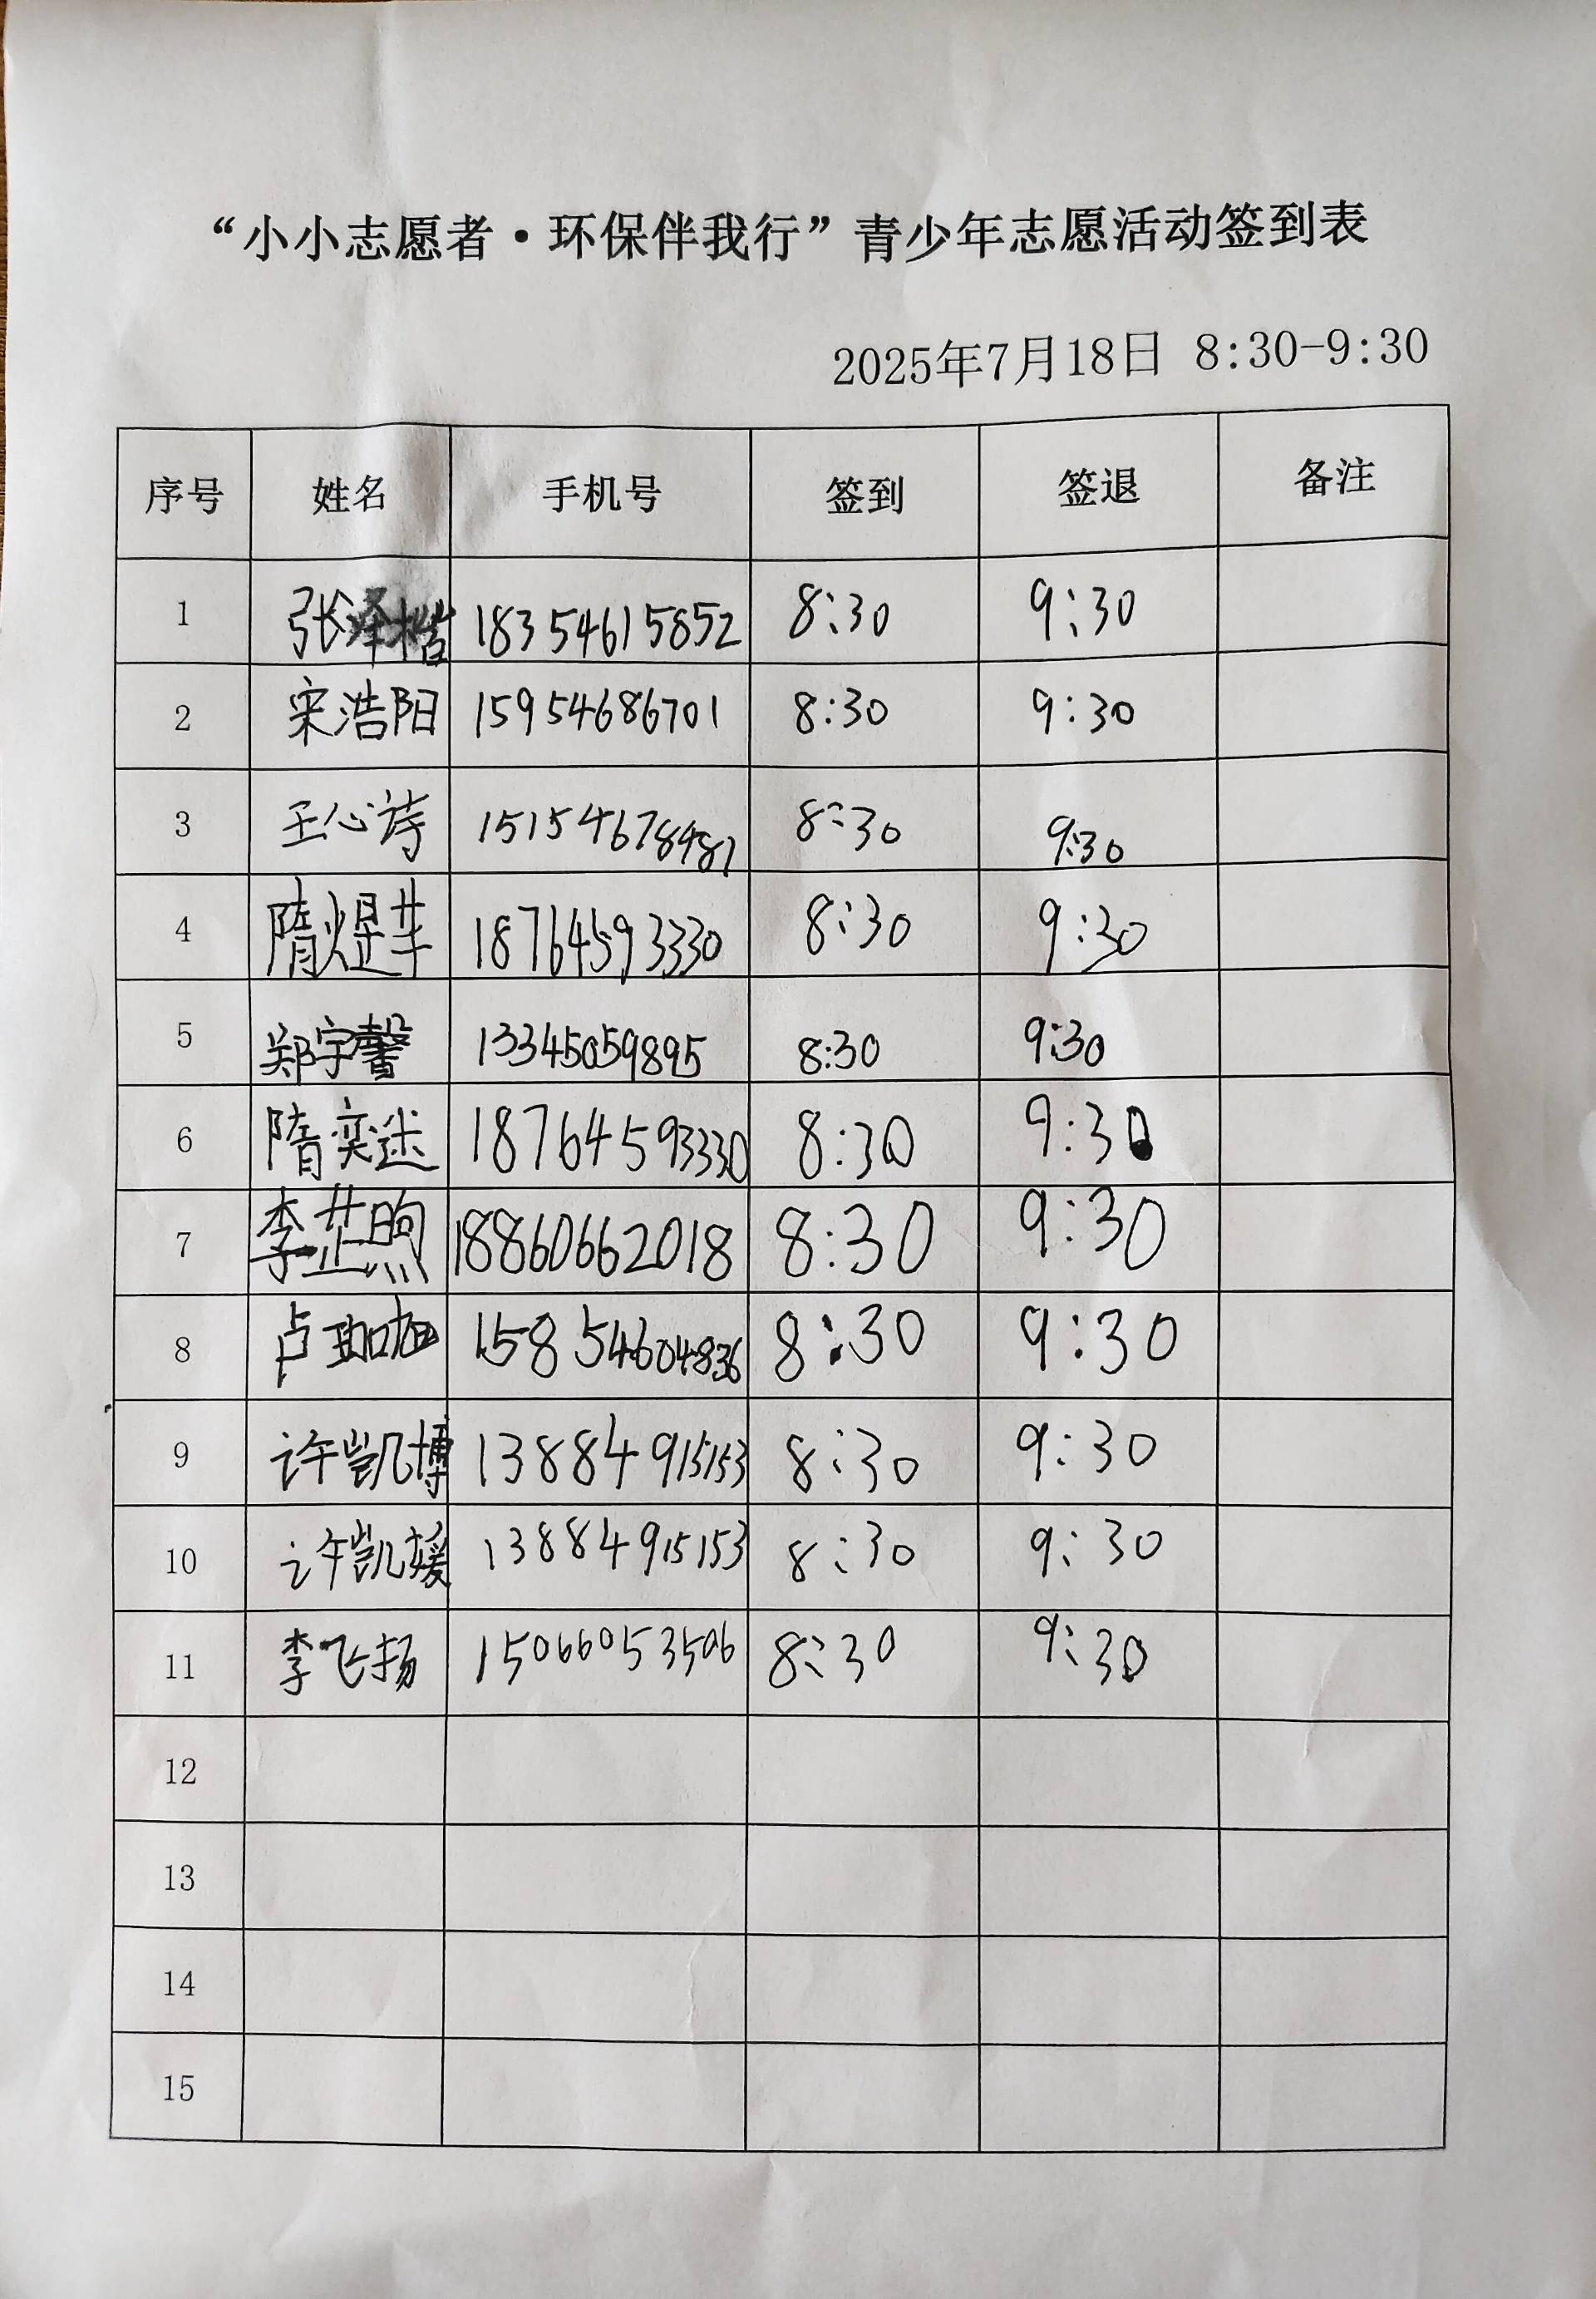 “小小志愿者·环保伴我行”青少年志愿活动签到表
2025年7月18日 8:30-9:30
序号 姓名 手机号 签到 签退 备注
1 张泽楷 18354615852 8:30 9:30
2 宋浩阳 15954686701 8:30 9:30
3 王心诗 15154678481 8:30 9:30
4 隋煜芈 18764593330 8:30 9:30
5 郑宇馨 13345059895 8:30 9:30
6 隋奕迷 18764593330 8:30 9:30
7 李芷煦 18860662018 8:30 9:30
8 卢 15854604836 8:30 9:30
9 许凯博 13884915153 8:30 9:30
10 许凯媛 13884915153 8:30 9:30
11 李飞扬 15066053506 8:30 9:30
12
13
14
15